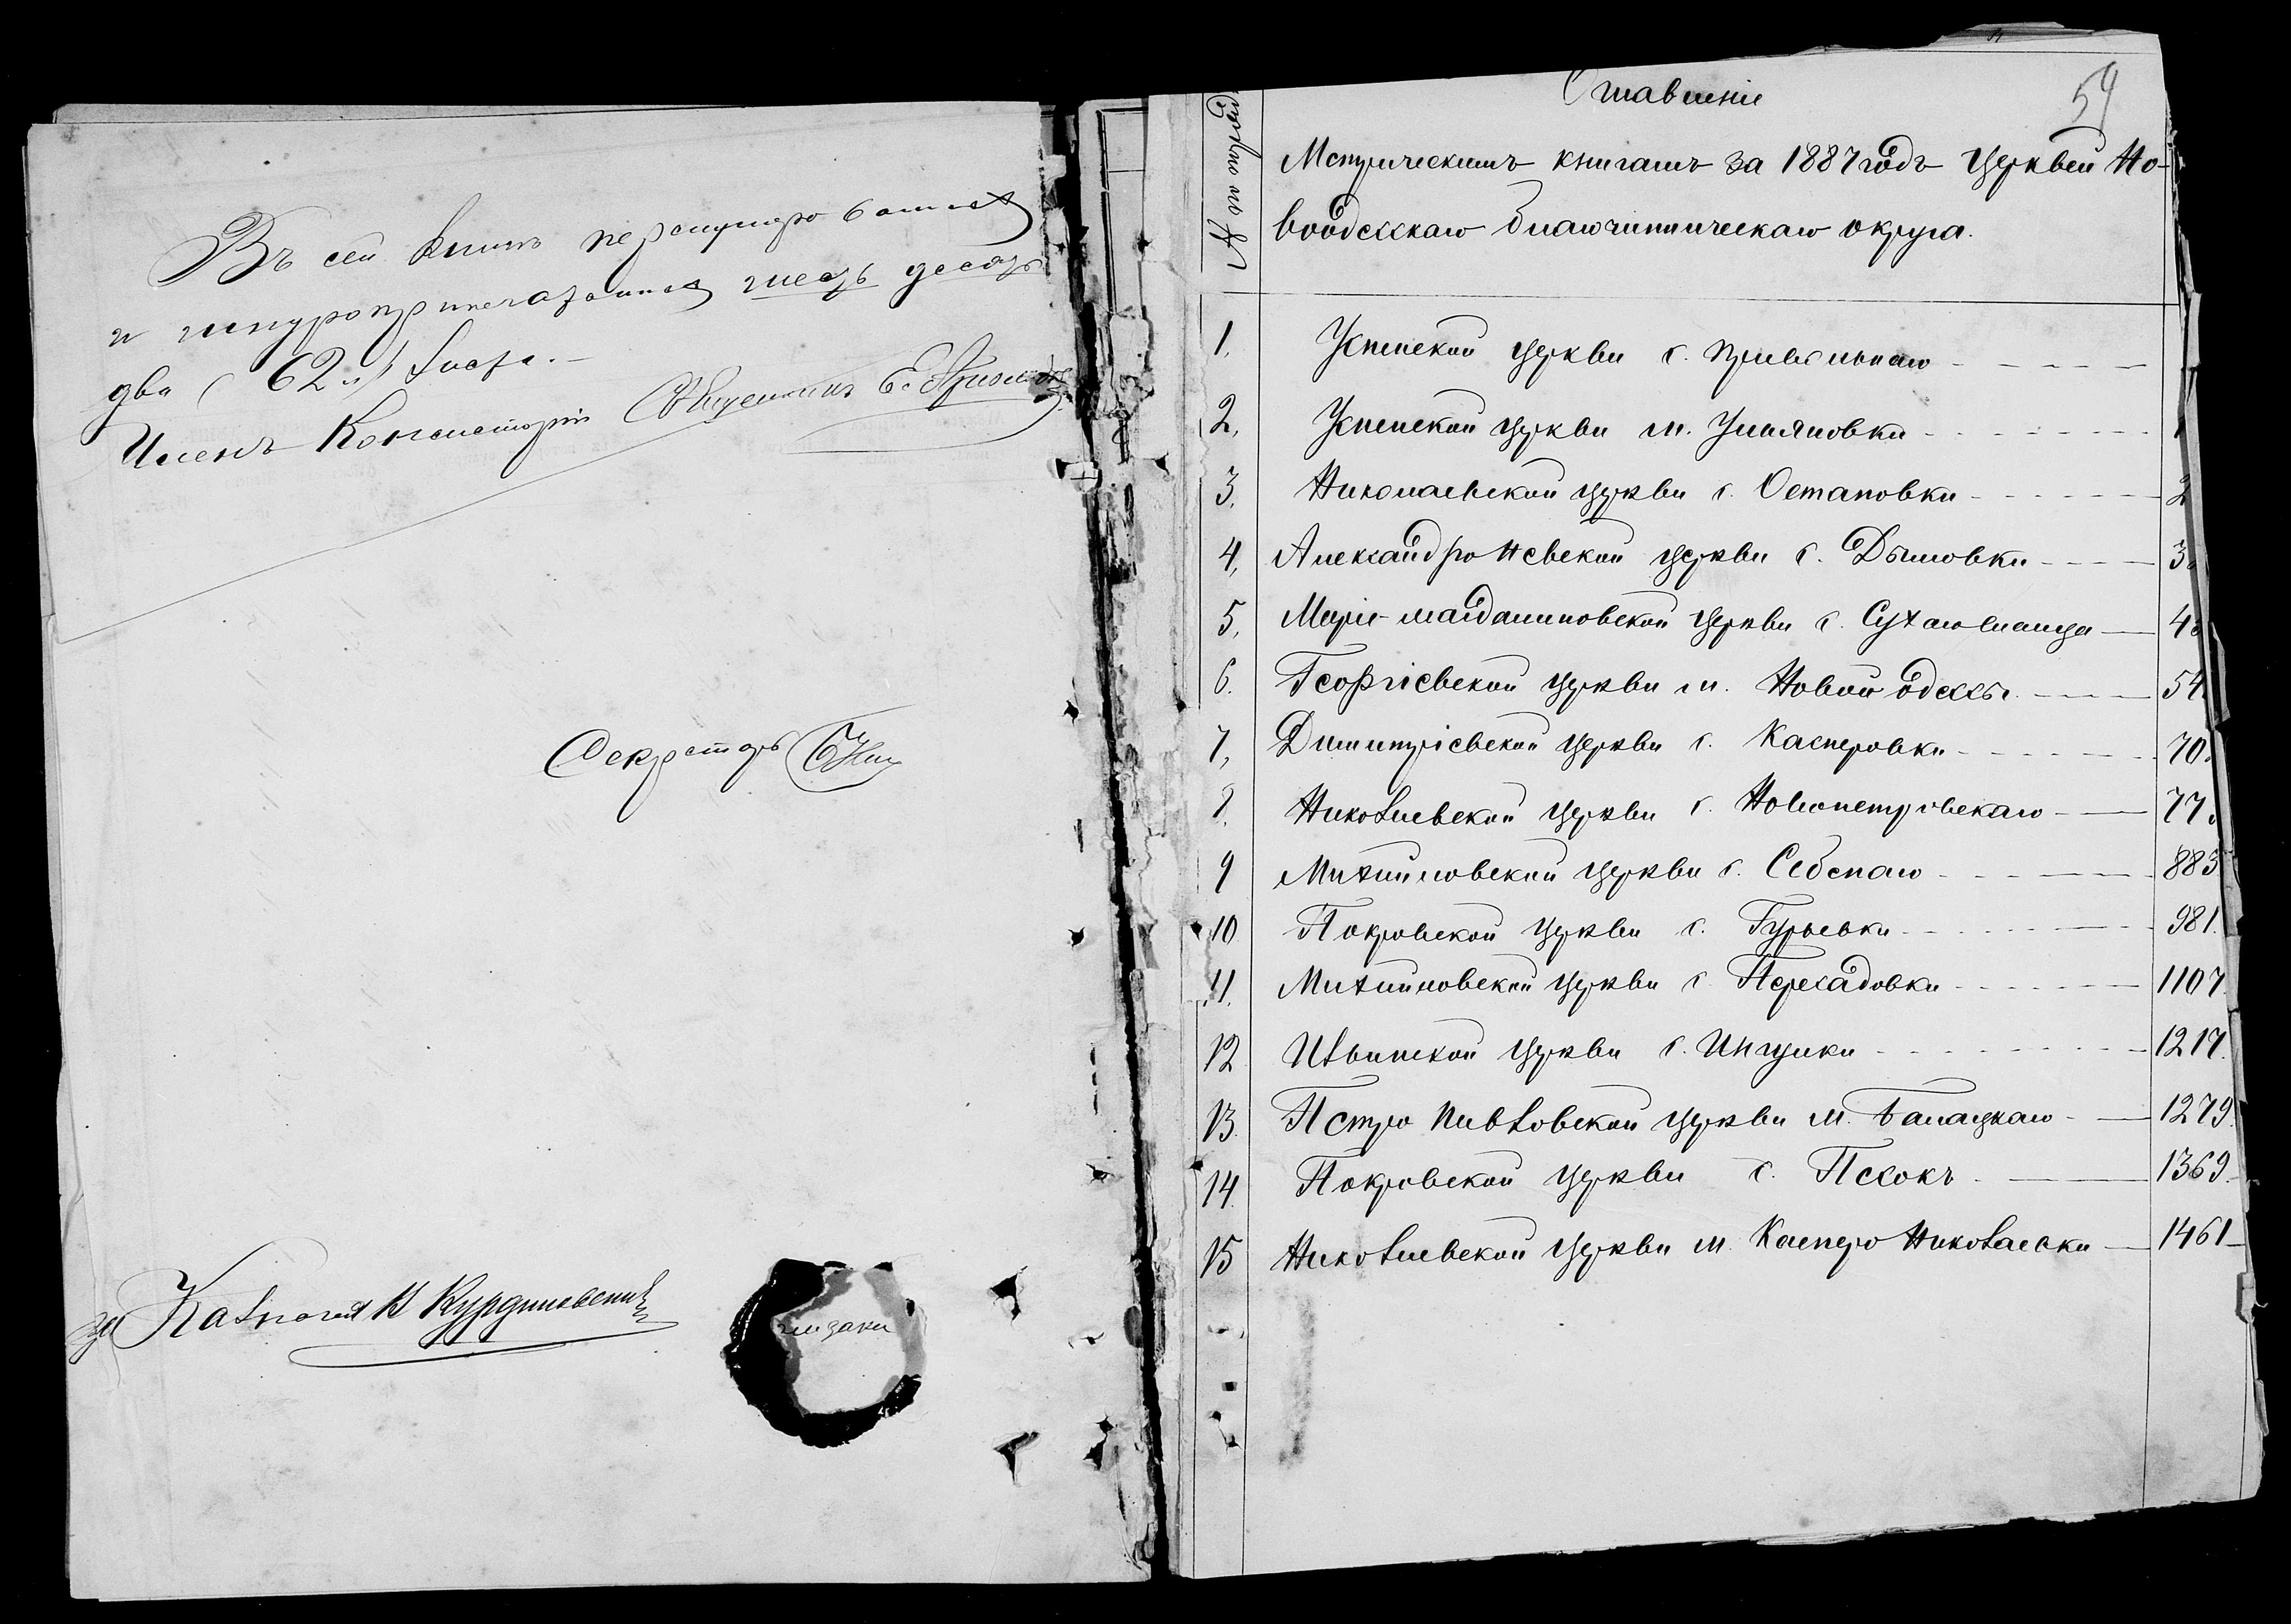 Въ сей книгѣ перенумерованныхъ
и шнуроприпечатанныхъ шесть десятъ
два (62 л.) листа.
Членъ Консисторіи Священникъ
Секретарь
за Казначея Н Курдиновскій
печати
Оглавленіе
54
№ по порядку
Метрическимъ книгамъ за 1887 годъ церквей Но-
воодесскаго благочинническаго округа.
1. Успенской церкви с. Привольнаго
2. Успенской церкви м. Ульяновки 1
3. Николаевской церкви с. Остаповки 2
4. Александро Невской церкви с. Дымовки 3
5. Маріе-магдалиновской церкви с. Сухаго Еланца 4
6. Георгіевской церкви м. Новой Одессы 54
7. Димитріевской церкви с. Касперовки 70
8. Николаевской церкви с. Новопетровскаго 77
9 Михайловской церкви с. Себенаго 883
10 Покровской церкви с. Гурьевки 981.
11. Михайловской церкви с. Пересадовки 1107
12 Ильинской церкви с. Ингулки 1217.
13. Петро Павловской церкви м. Балацкаго 1279.
14. Покровской церкви с. Песокъ 1369.
15 Николаевской церкви м. Касперо Николаевки 1461